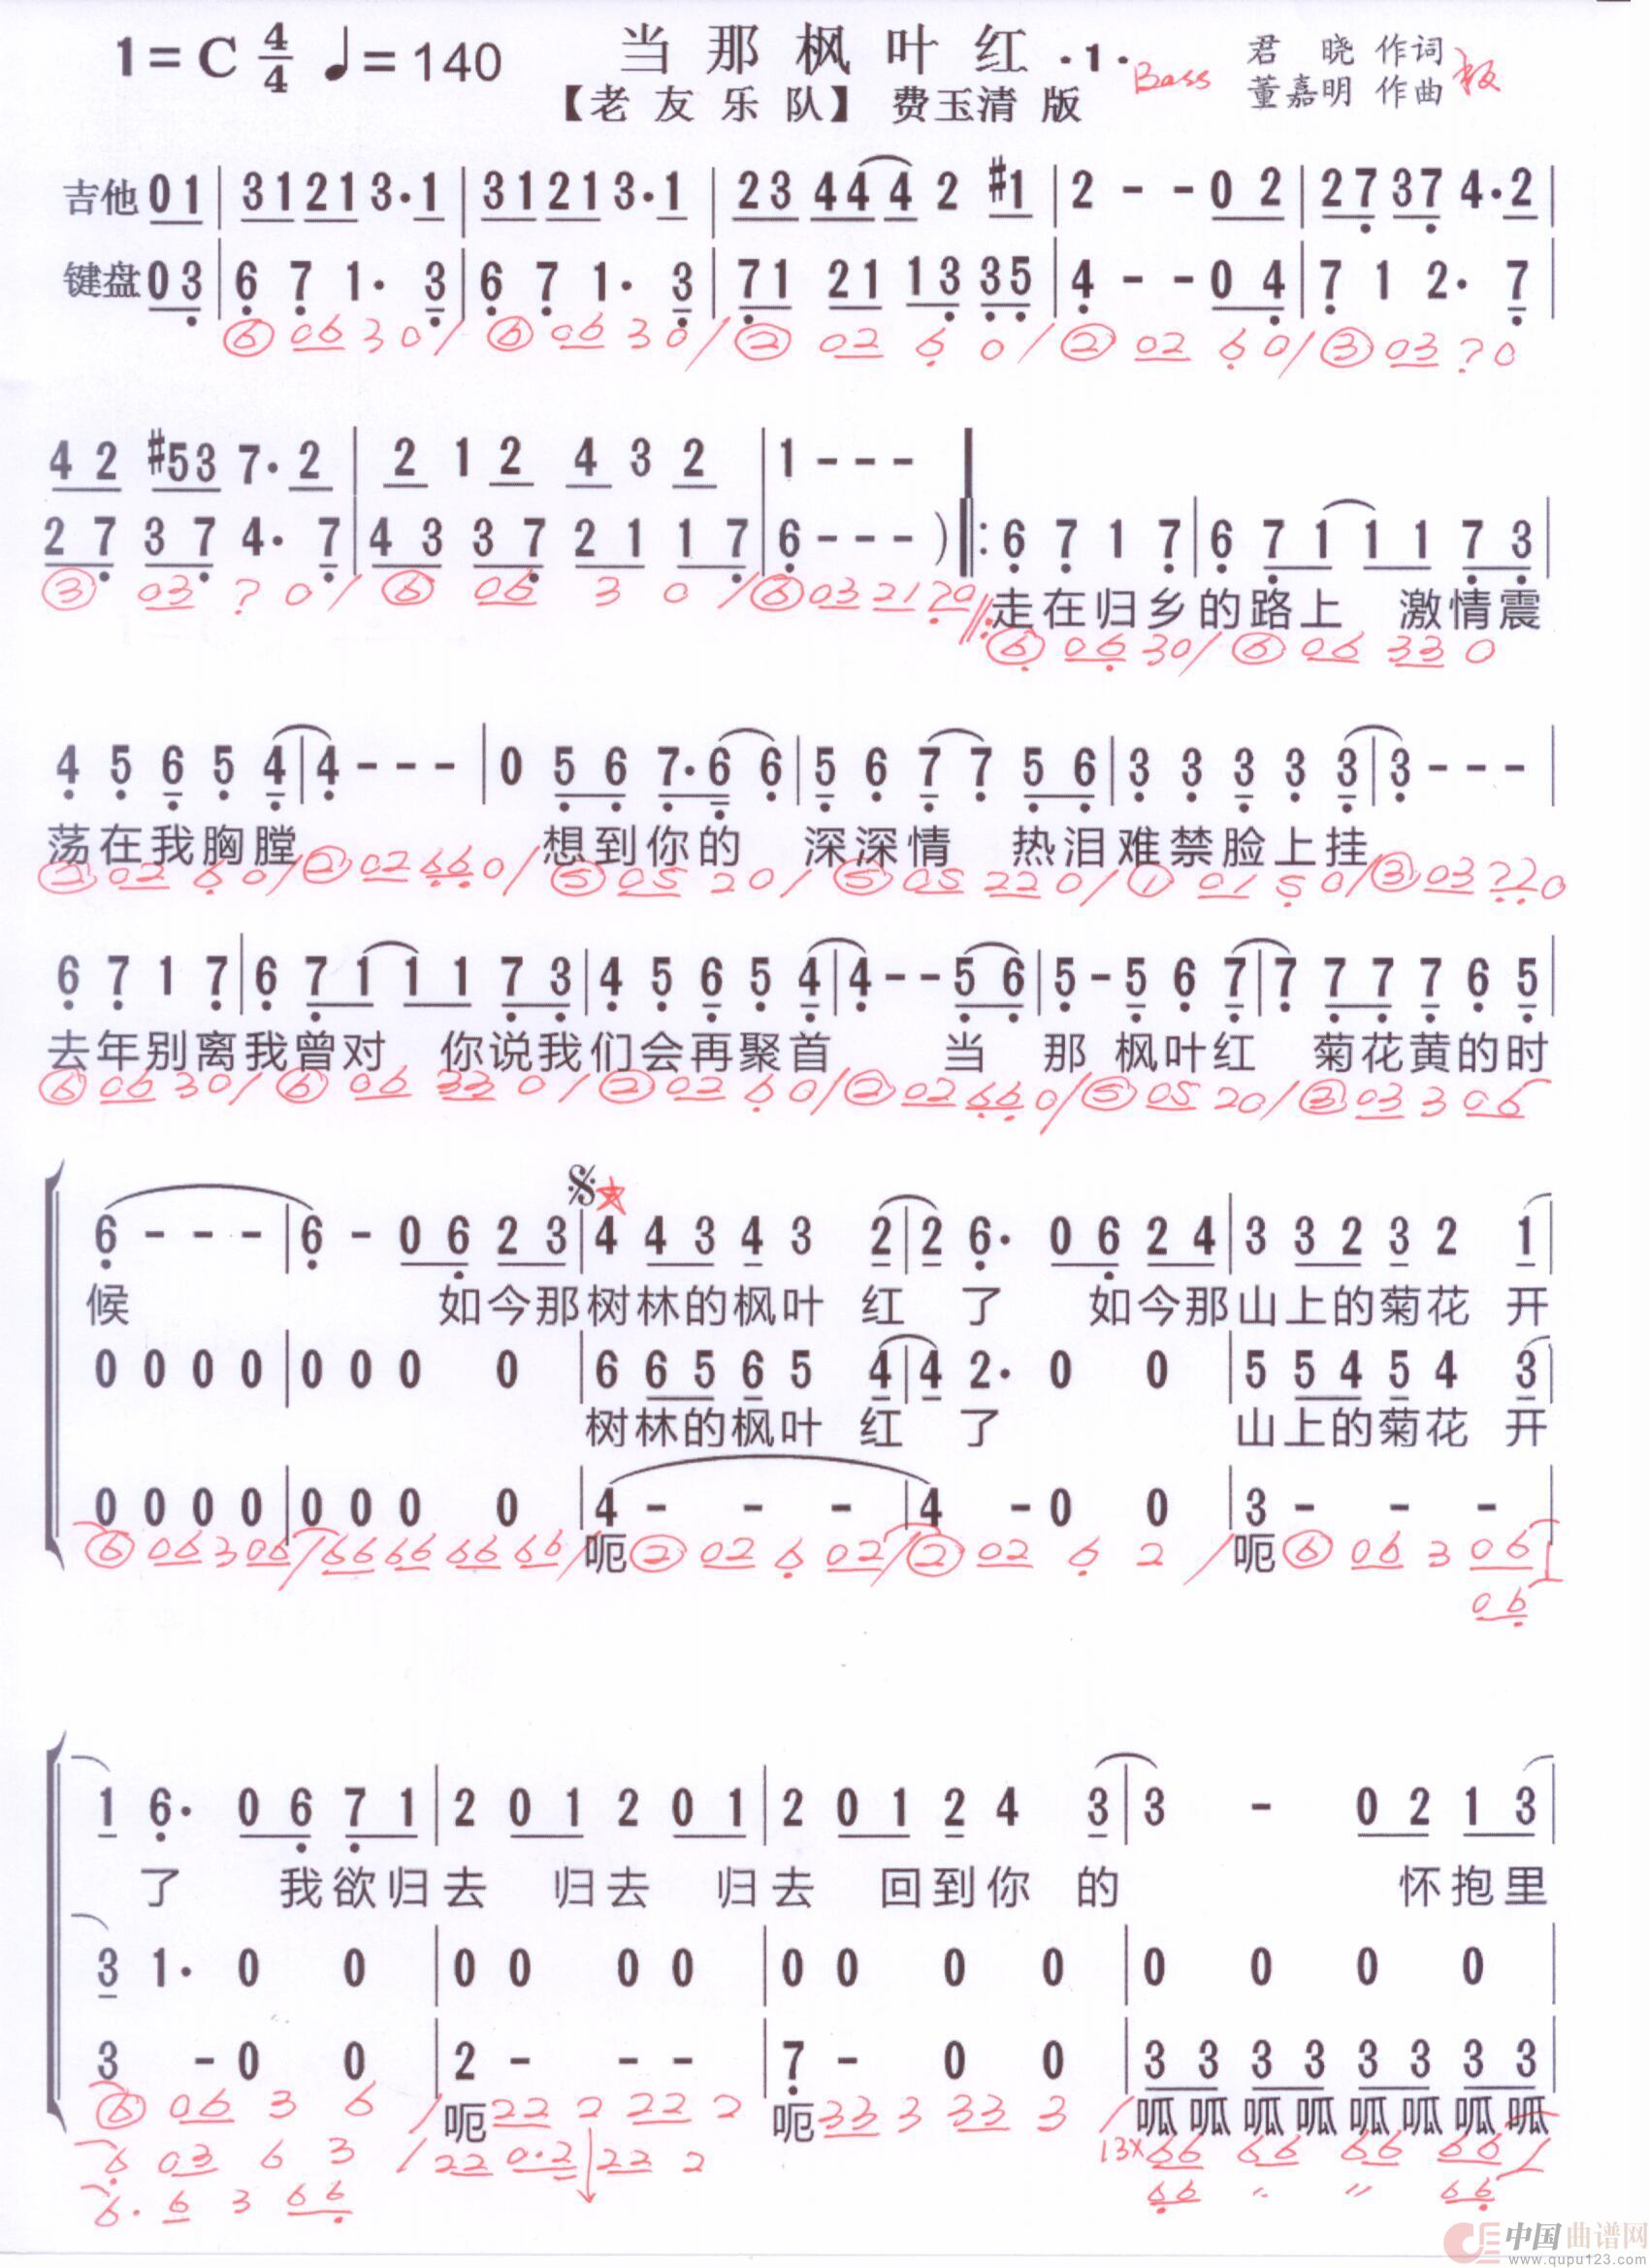 1=C 4/4 ♩=140 当那枫叶红 ·1· Bass 君 晓 作词
【老友乐队】 费玉清 版 董嘉明 作曲 板
吉他 0 1 | 3 1 2 1 3· 1 | 3 1 2 1 3· 1 | 2 3 4 4 4 2 #1 | 2 - - 0 2 | 2 7 3 7 4· 2 |
键盘 0 3 | 6 7 1· 3 | 6 7 1· 3 | 7 1 2 1 1 3 3 5 | 4 - - 0 4 | 7 1 2· 7 |
⑥ 06 3 0 / ⑥ 06 3 0 / ② 02 6 0 / ② 02 6 0 / ③ 03 7 0
4 2 #5 3 7· 2 | 2 1 2 4 3 2 | 1 - - - |
2 7 3 7 4· 7 | 4 3 3 7 2 1 1 7 | 6 - - - ) ‖: 6 7 1 7 | 6 7 1 1 1 7 3 |
走在归乡的路上 激情震
③ 03 7 0 / ⑥ 06 3 0 / ⑥ 03 21 70 ‖: ⑥ 06 3 0 / ⑥ 06 33 0
4 5 6 5 4 | 4 - - - | 0 5 6 7· 6 6 | 5 6 7 7 5 6 | 3 3 3 3 3 | 3 - - - |
荡在我胸膛 想到你的 深深情 热泪难禁脸上挂
② 02 6 0 / ② 02 66 0 / ⑤ 05 2 0 / ⑤ 05 22 0 / ① 01 5 0 / ③ 03 77 0
6 7 1 7 | 6 7 1 1 1 7 3 | 4 5 6 5 4 | 4 - - 5 6 | 5 - 5 6 7 | 7 7 7 7 6 5 |
去年别离我曾对 你说我们会再聚首 当 那 枫叶红 菊花黄的时
⑥ 06 3 0 / ⑥ 06 33 0 / ② 02 6 0 / ② 02 66 0 / ⑤ 05 2 0 / ③ 03 3 06
6 - - - | 6 - 0 6 2 3 | 4 4 3 4 3 2 | 2 6· 0 6 2 4 | 3 3 2 3 2 1 |
候 如今那树林的枫叶 红 了 如今那山上的菊花 开
0 0 0 0 | 0 0 0 0 | 6 6 5 6 5 4 | 4 2· 0 0 | 5 5 4 5 4 3 |
树林的枫叶 红 了 山上的菊花 开
0 0 0 0 | 0 0 0 0 | 4 - - - | 4 - 0 0 | 3 - - - |
呃 呃
⑥ 06 3 06 / 66 66 66 66 / ② 02 6 02 / ② 02 6 2 / ⑥ 06 3 06
06
1 6· 0 6 7 1 | 2 0 1 2 0 1 | 2 0 1 2 4 3 | 3 - 0 2 1 3 |
了 我欲归去 归去 归去 回到你 的 怀抱里
3 1· 0 0 | 0 0 0 0 | 0 0 0 0 | 0 0 0 0 |
3 - 0 0 | 2 - - - | 7 - 0 0 | 3 3 3 3 3 3 3 3 |
呃 呃 呱呱呱呱呱呱呱呱
⑥ 06 3 6 / 22 2 22 2 33 3 33 3 / 13x 66 66 66 66
6 03 6 3 / 22 0·2 22 2 66 〃 〃 66
6· 6 3 66
中国曲谱网
www.qupu123.com